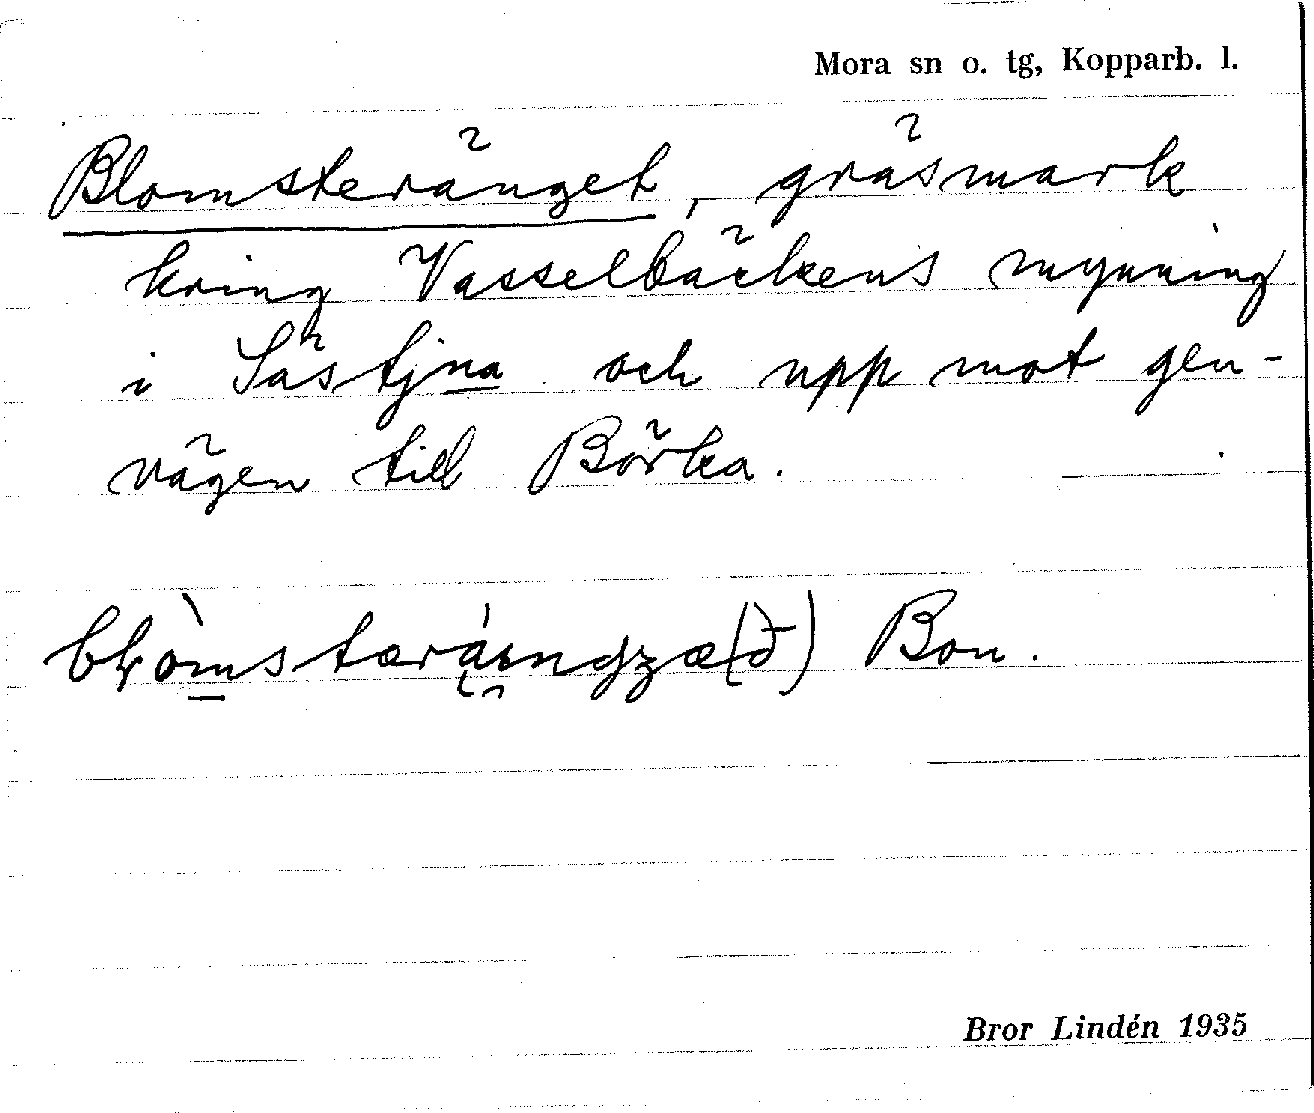 Mora sn o. tg, Kopparb. l.
Blomsteränget, gräsmark
kring Vasselbäckens mynning
i Sästjna och upp mot gen-
vägen till Börka.
Bon.
Bror Lindén 1935